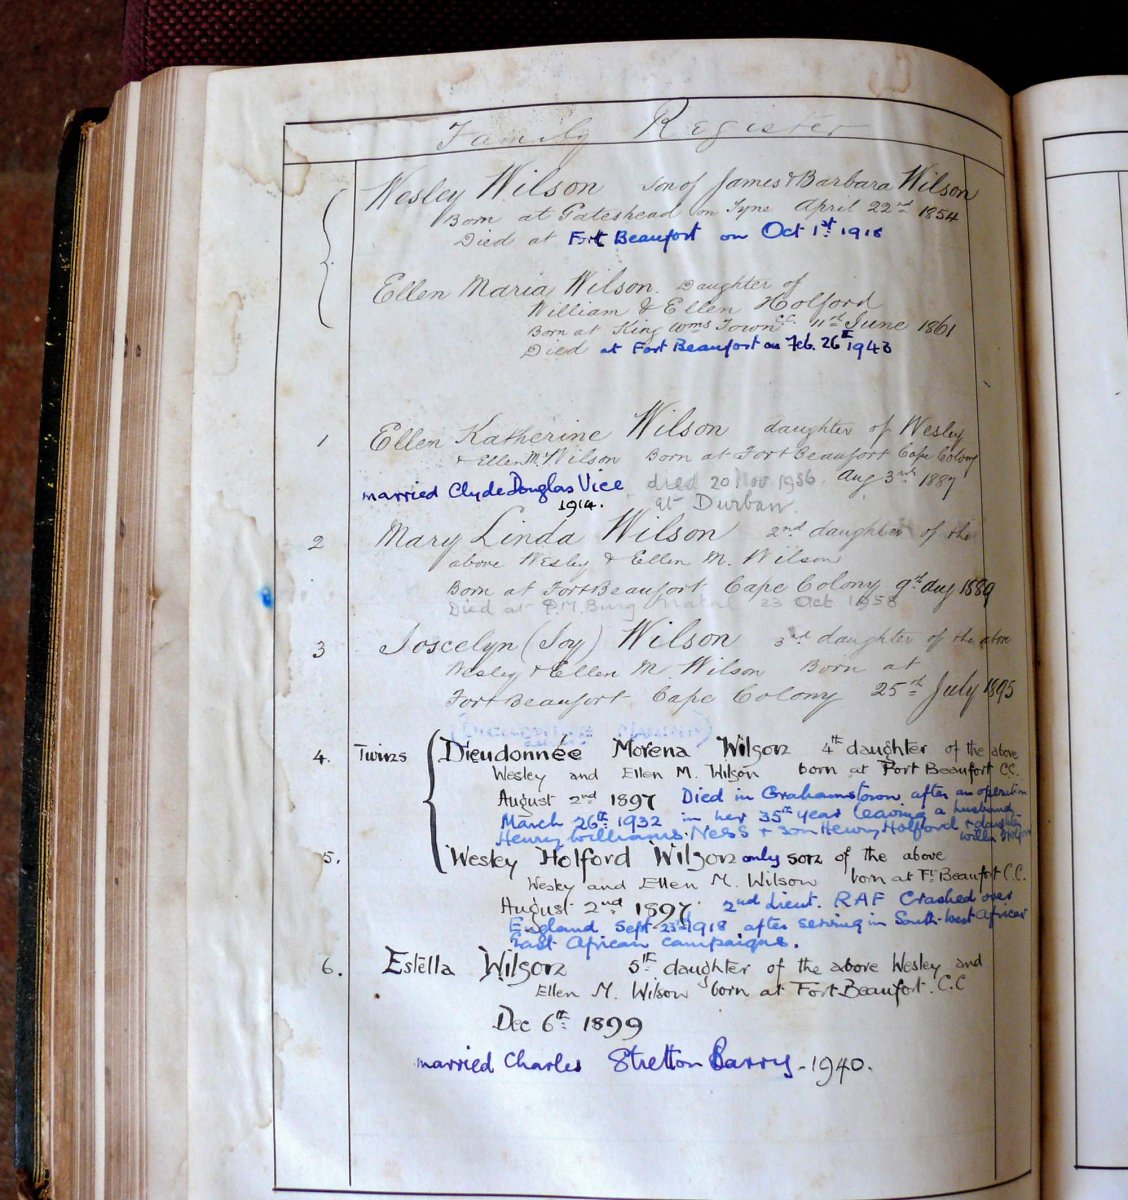 Family Register
Wesley Wilson son of James & Barbara Wilson
Born at Gateshead on Tyne April 22nd 1854
Died at Fort Beaufort on Oct 1st 1918
Ellen Maria Wilson. Daughter of
William & Ellen Holford
Born at King Wms Town C.C. 11th June 1861
Died at Fort Beaufort on Feb. 26th 1943
1 Ellen Katherine Wilson daughter of Wesley
& Ellen M. Wilson Born at Fort Beaufort Cape Colony
Aug 3rd 1887
married Clyde Douglas Vice died 20 Nov 1956
1914. at Durban.
2 Mary Linda Wilson 2nd daughter of the
above Wesley & Ellen M. Wilson
Born at Fort Beaufort Cape Colony 9th Aug 1889
Died at P.M.Burg Natal 23 Oct 1958
3 Joscelyn (Joy) Wilson 3rd daughter of the above
Wesley & Ellen M. Wilson Born at
Fort Beaufort Cape Colony 25th July 1895
4. Twins Dieudonnée Morena Wilson 4th daughter of the above
Wesley and Ellen M. Wilson born at Fort Beaufort C.C.
August 2nd 1897 Died in Grahamstown after an operation
March 26th 1932 in her 35th year leaving a husband
Henry Williams Ness & son Henry Holford & daughter
5. Wesley Holford Wilson only son of the above
Wesley and Ellen M. Wilson born at Ft Beaufort C.C.
August 2nd 1897 2nd Lieut. RAF Crashed over
England Sept 23rd 1918 after serving in South-West African
East African campaigns.
6. Estella Wilson 5th daughter of the above Wesley and
Ellen M. Wilson born at Fort Beaufort. C.C
Dec 6th 1899
married Charles Stretton Barry - 1940.